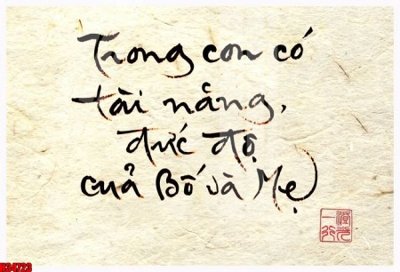 Trong con có
tài năng,
đức độ
của Bố và Mẹ